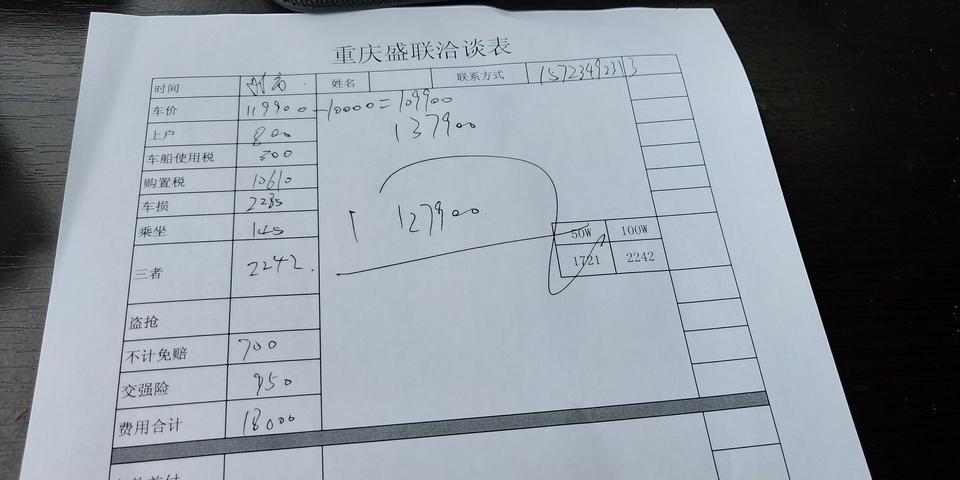 重庆盛联洽谈表
时间 姓名 联系方式
车价 119900 -10000=109900
137900
上户 800
车船使用税 300
购置税 10610
车损 2285
127900
乘坐 145
50W 100W
三者 2242. 1721 2242
盗抢
不计免赔 700
交强险 950
费用合计 18000